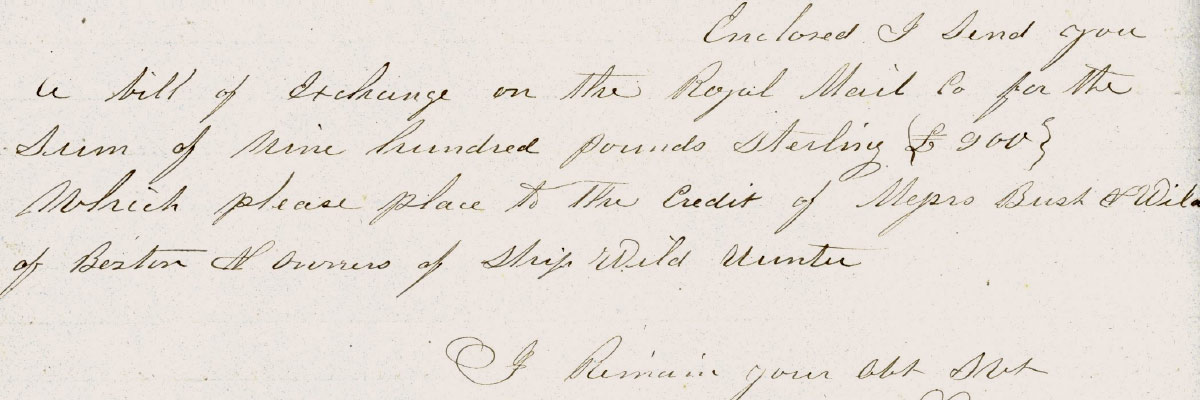 Enclosed I Send you
a bill of Exchange on the Royal Mail Co for the
Sum of Nine hundred pounds Sterling {£900}
Which please place to the Credit of Messrs Bush & Wild
of Boston & owners of Ship Wild Hunter
I Remain your Obt Svt